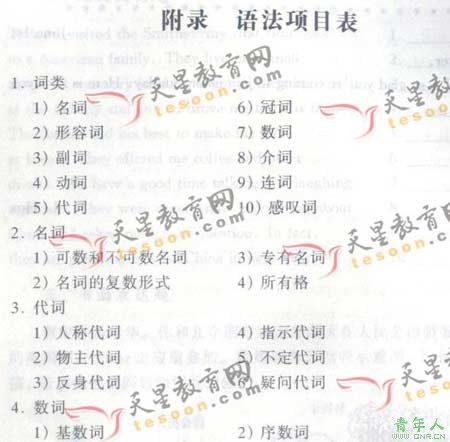 附录 语法项目表
1. 词类
1) 名词 6) 冠词
2) 形容词 7) 数词
3) 副词 8) 介词
4) 动词 9) 连词
5) 代词 10) 感叹词
2. 名词
1) 可数和不可数名词 3) 专有名词
2) 名词的复数形式 4) 所有格
3. 代词
1) 人称代词 4) 指示代词
2) 物主代词 5) 不定代词
3) 反身代词 6) 疑问代词
4. 数词
1) 基数词 2) 序数词
天星教育网
tesoon.com
天星教育网
tesoon.com
天星教育网
tesoon.com
天星教育网
tesoon.com
青年人
www.cna.cn